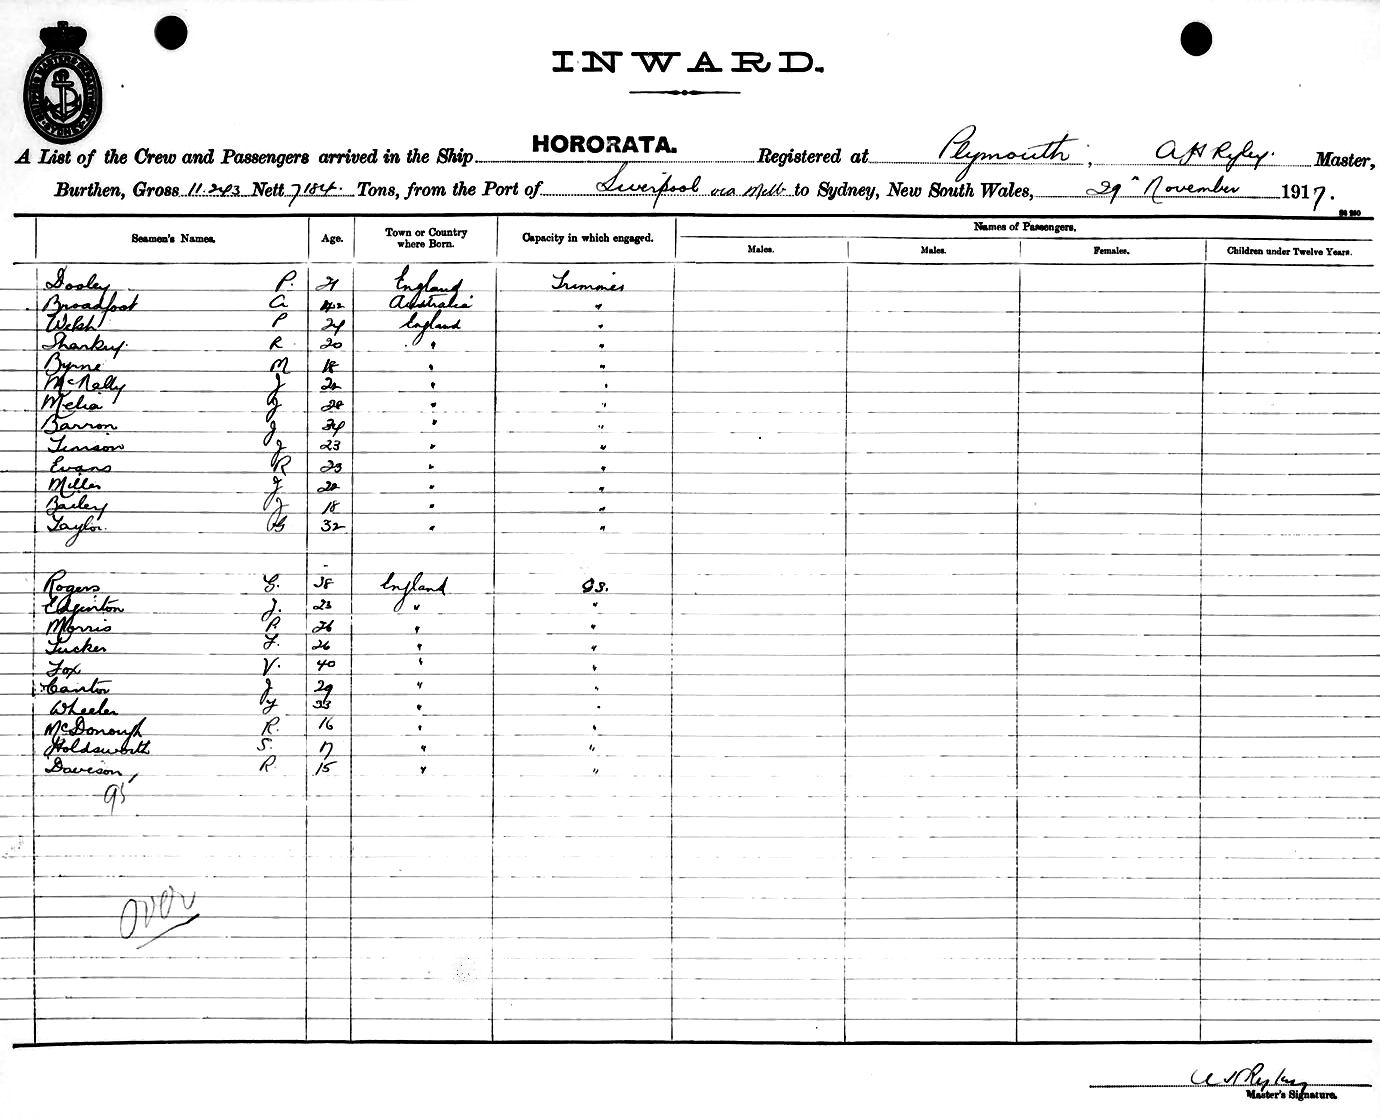 INWARD.
HORORATA.
A List of the Crew and Passengers arrived in the Ship Registered at Plymouth, A H Ryley. Master,
Burthen, Gross 11.243 Nett 7184. Tons, from the Port of Liverpool via Melb to Sydney, New South Wales, 29" November 1917.
Seamen's Names. Age. Town or Country where Born. Capacity in which engaged. Names of Passengers.
Males. Males. Females. Children under Twelve Years.
Dooley P. 21 England Trimmer
Broadfoot A 42 Australia "
Welsh P 24 England "
Sharkey R 20 " "
Byrne M 18 " "
McNally J 22 " "
Melia J 28 " "
Barron J 34 " "
Timson J 23 " "
Evans R 23 " "
Miller J 22 " "
Bailey J 18 " "
Taylor G 32 " "
Rogers G. 38 England GS.
Edginton J. 23 " "
Morris P. 26 " "
Tucker F. 26 " "
Fox V. 40 " "
Cantor J 29 " "
Wheeler F 33 " "
McDonough R. 16 " "
Holdsworth S. 17 " "
Davison, R. 15 " "
95
over
A H Ryley
Master's Signature.